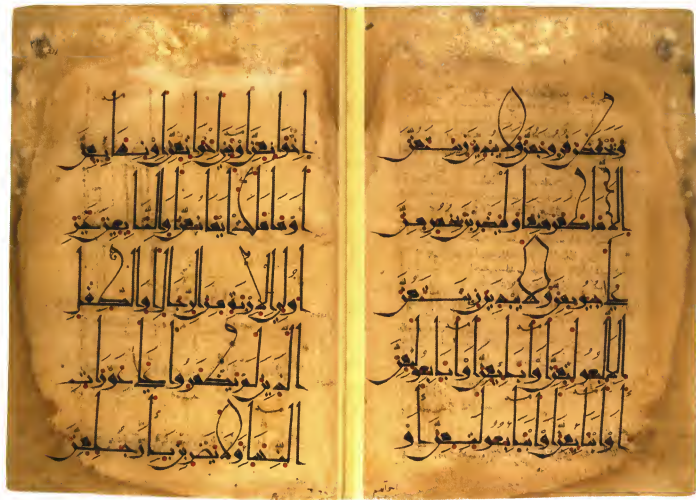 ويحفظن فروجهن ولا يبدين زينتهن
الا ما ظهر منها وليضربن بخمرهن
على جيوبهن ولا يبدين زينتهن
الا لبعولتهن او ابائهن او اباء بعولتهن
او ابنائهن او ابناء بعولتهن او
اخوانهن او بنى اخواتهن او نسائهن
او ما ملكت ايمانهن او التابعين غير
اولى الاربة من الرجال او الطفل
الذين لم يظهروا على عورات
النساء ولا يضربن بارجلهن